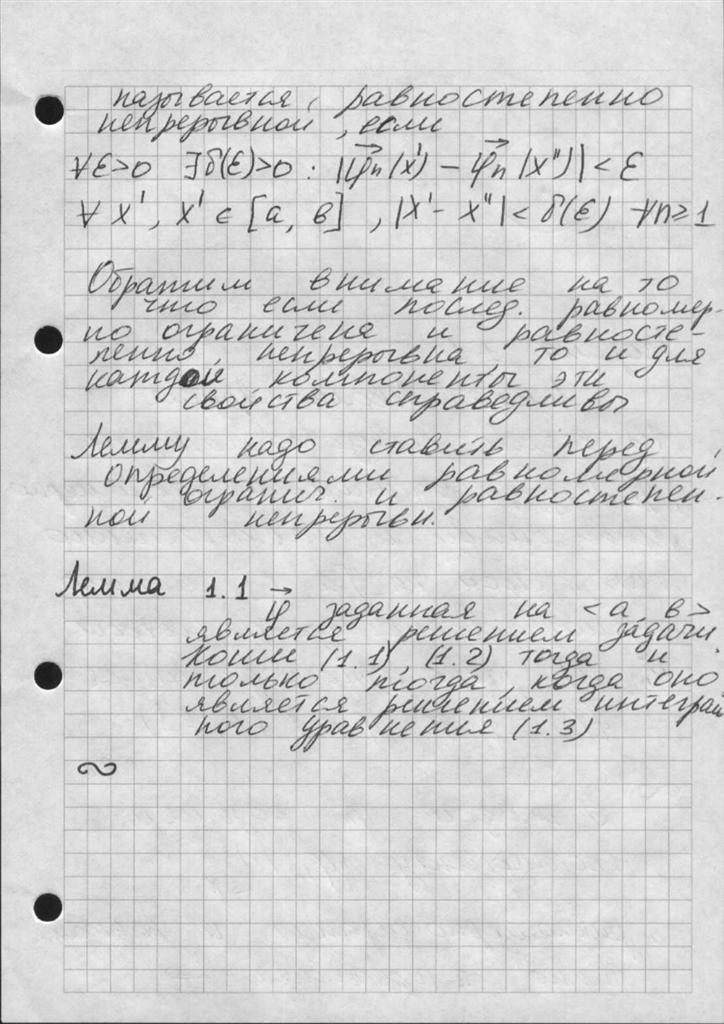 называется, равностепенно
непрерывной, если
∀ε>0 ∃δ(ε)>0 : |φ⃗n(x') − φ⃗n(x")| < ε
∀ x', x' ∈ [a, в] , |x' - x"| < δ(ε) ∀n≥1
Обратим внимание на то
что если послед. равномер-
но ограничена и равносте-
пенно, непрерывна, то и для
каждой компоненты эти
свойства справедливы
Лемму надо ставить перед,
определениями равномерной
огранич. и равностепен-
ной непрерывн.
Лемма 1.1
φ⃗ заданная на <a, в>
является решением задачи
Коши (1.1), (1.2) тогда и
только тогда, когда оно
является решением интеграль
ного уравнения (1.3)